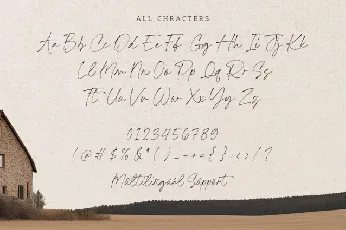 ALL CHRACTERS
Aa Bb Cc Dd Ee Ff Gg Hh Ii Jj Kk
Ll Mm Nn Oo Pp Qq Rr Ss
Tt Uu Vv Ww Xx Yy Zz
0123456789
!@#$%&*()_-+={}:<>/?
Multilingual Support